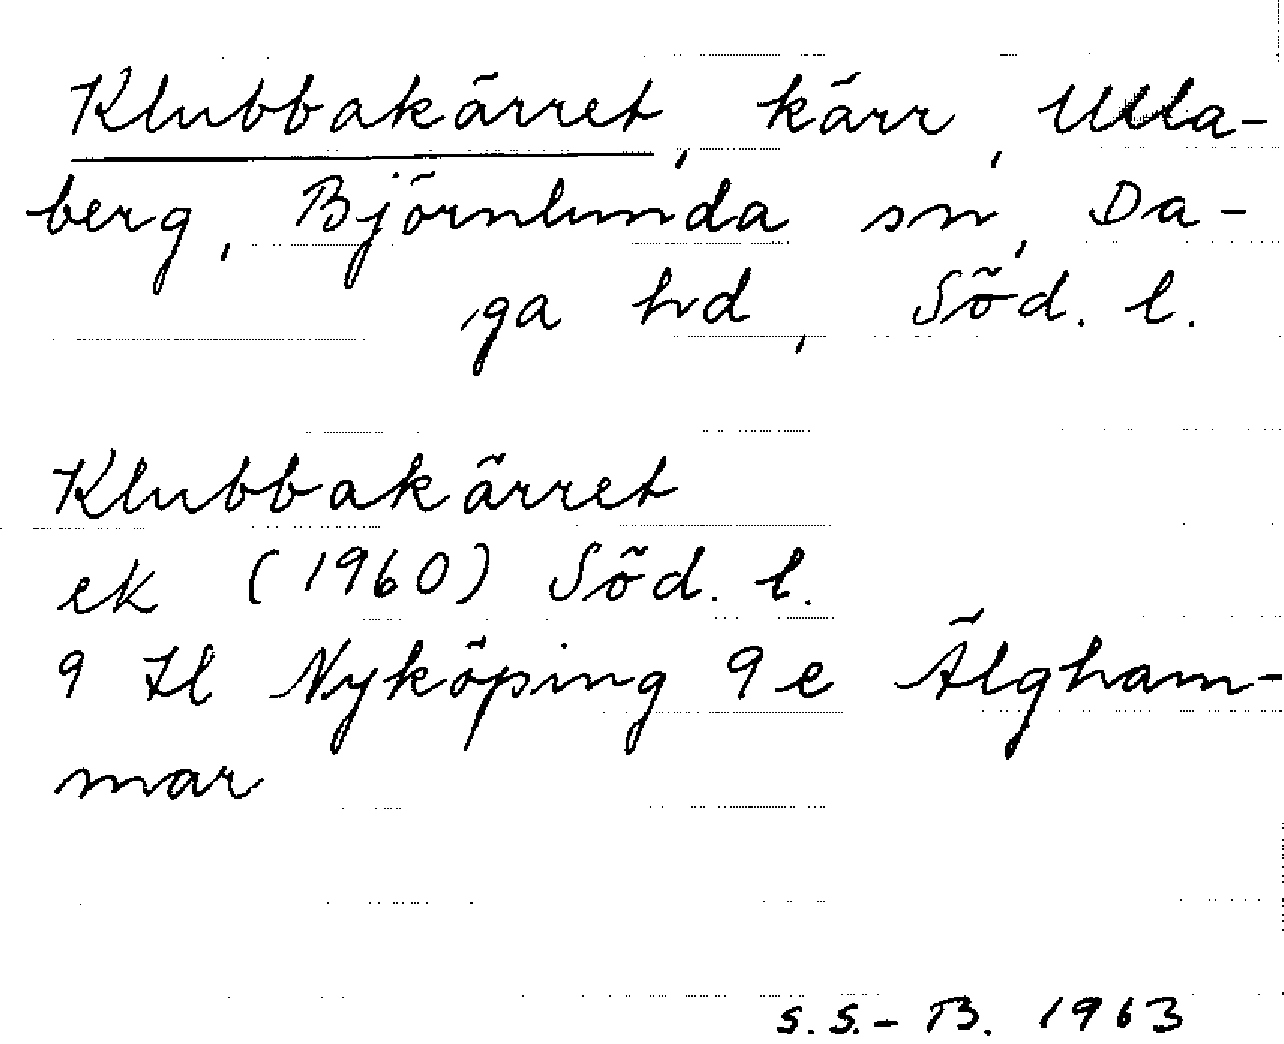 Klubbakärret, kärr, Ulla-
berg, Björnlunda sn, Da-
ga hd, Söd. l.
Klubbakärret
ek (1960) Söd. l.
9 Il Nyköping 9e Älgham-
mar
S.S.-B. 1963